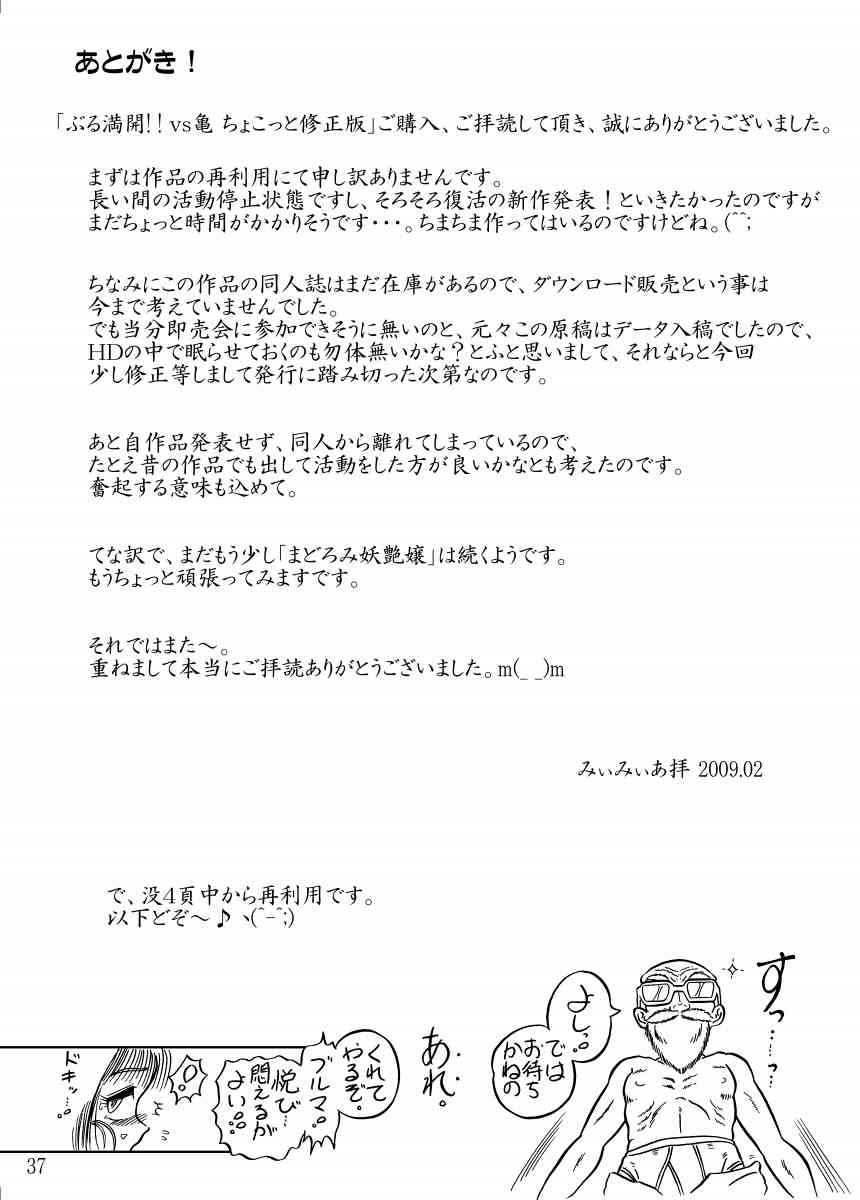 あとがき！
「ぶる満開!！vs亀 ちょこっと修正版」ご購入、ご拝読して頂き、誠にありがとうございました。
まずは作品の再利用にて申し訳ありませんです。
長い間の活動停止状態ですし、そろそろ復活の新作発表！といきたかったのですが
まだちょっと時間がかかりそうです・・・。ちまちま作ってはいるのですけどね。(^^;
ちなみにこの作品の同人誌はまだ在庫があるので、ダウンロード販売という事は
今まで考えていませんでした。
でも当分即売会に参加できそうに無いのと、元々この原稿はデータ入稿でしたので、
ＨＤの中で眠らせておくのも勿体無いかな？とふと思いまして、それならと今回
少し修正等しまして発行に踏み切った次第なのです。
あと自作品発表せず、同人から離れてしまっているので、
たとえ昔の作品でも出して活動をした方が良いかなとも考えたのです。
奮起する意味も込めて。
てな訳で、まだもう少し「まどろみ妖艶嬢」は続くようです。
もうちょっと頑張ってみますです。
それではまた～。
重ねまして本当にご拝読ありがとうございました。m(_ _)m
みぃみぃあ拝 2009.02
で、没４頁中から再利用です。
以下どぞ～♪ヽ(^-^;)
すっ…っ…
よしっ
では
お待ち
かねの
あれ。
くれて
やるぞ。
ブルマ。
悦び…
悶えるが
よい…
！
ドキッ…
37